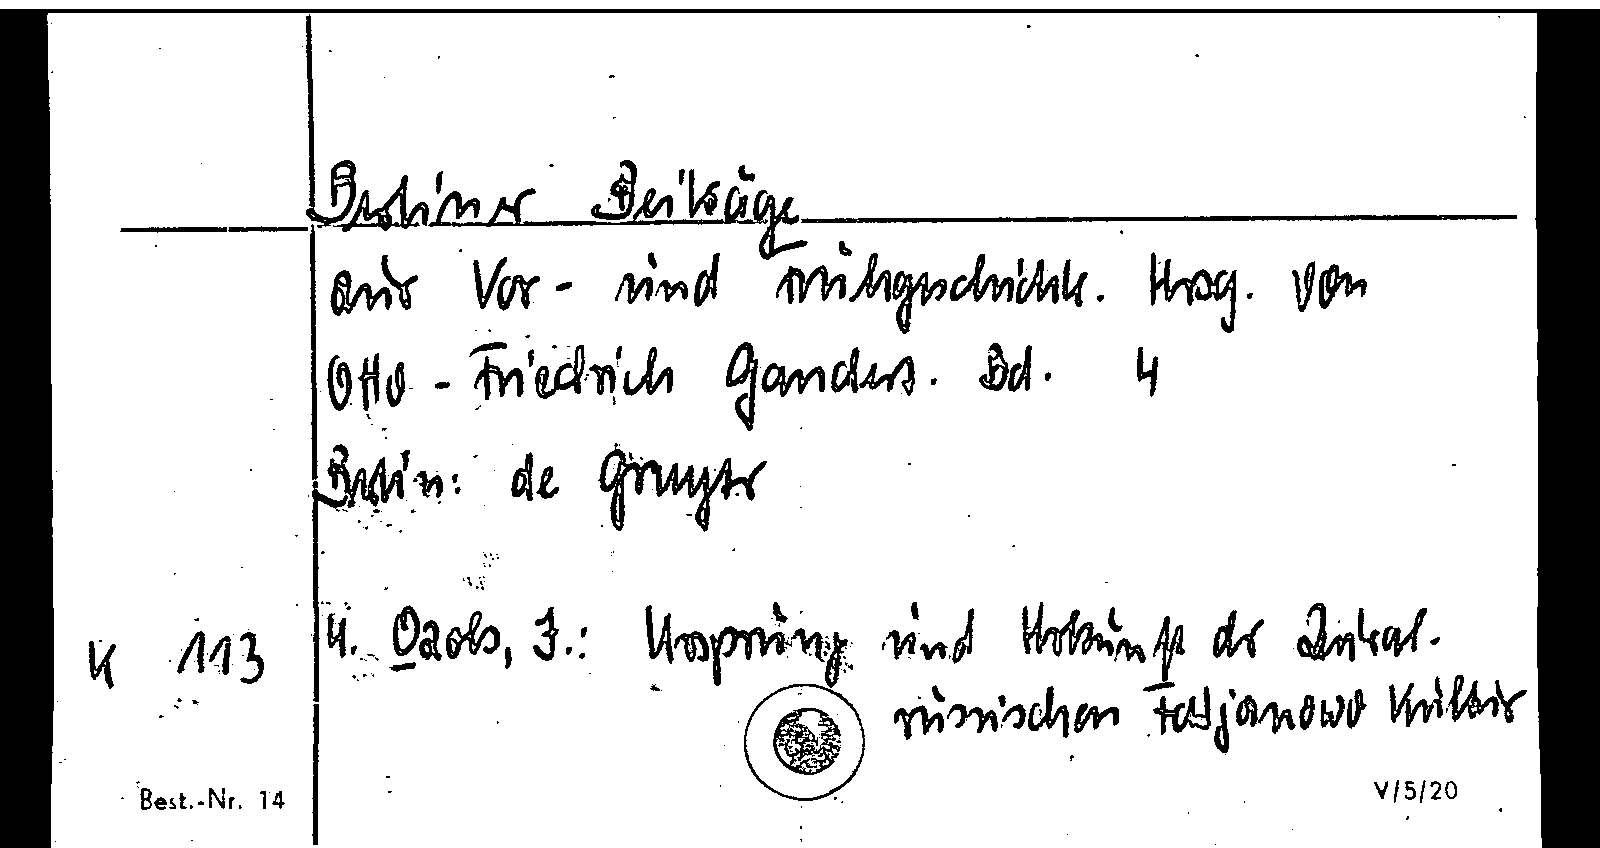 Berliner Beiträge
aus Vor- und Frühgeschichte. Hrsg. von
Otto-Friedrich Gandert. Bd. 4
Berlin: de Gruyter
K 113 4. Ozols, J.: Ursprung und Herkunft der Zentral-
russischen Fatjanowo Kultur
Best.-Nr. 14 V/5/20